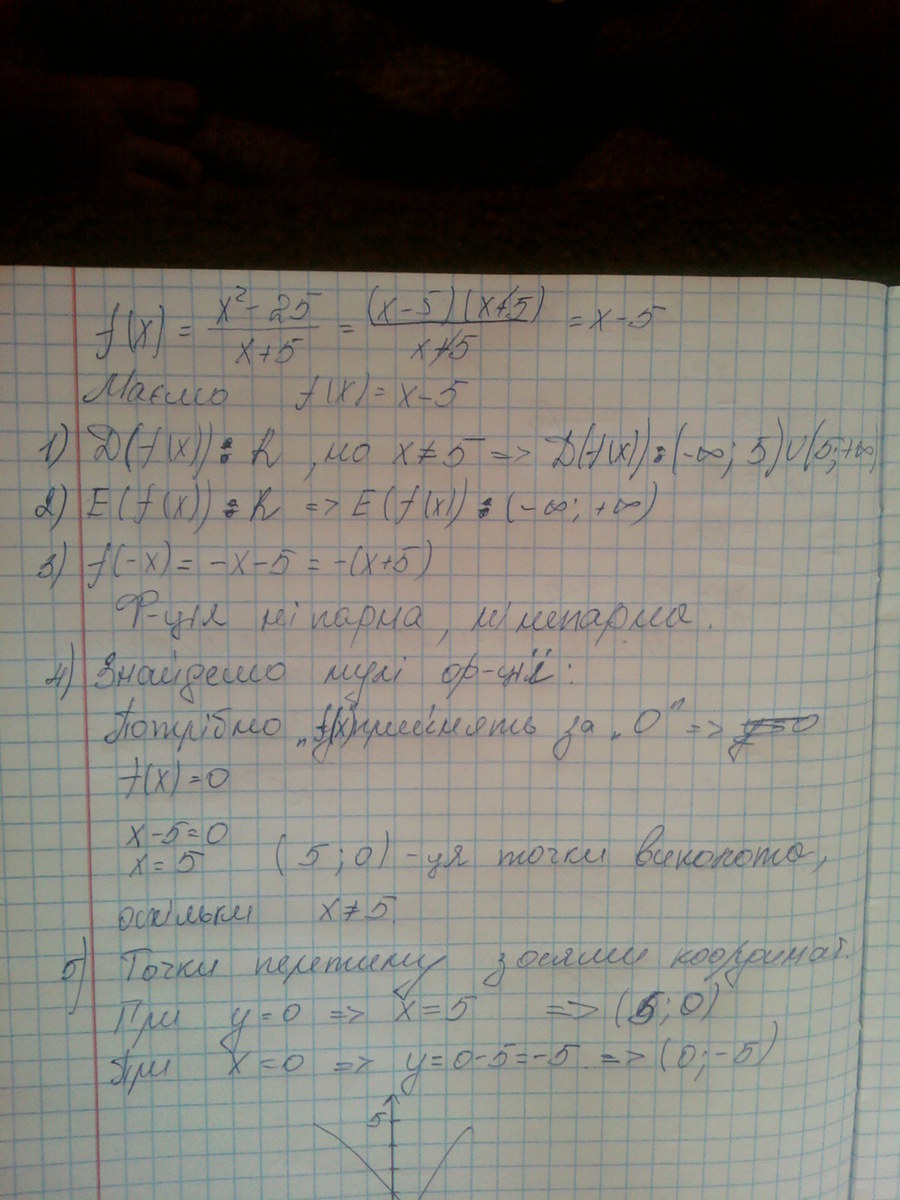 f(x) = x² - 25 / x+5 = (x-5)(x+5) / x+5 = x-5
Маємо f(x) = x-5
1) D(f(x)): R, но x≠5 => D(f(x)): (-∞; 5)∪(5;+∞
2) E(f(x)): R => E(f(x)): (-∞; +∞)
3) f(-x) = -x-5 = -(x+5)
Ф-ція ні парна, ні непарна.
4) Знайдемо нулі ф-ції:
Потрібно „f(x)" прийнять за „0" =>
f(x) = 0
x-5=0
x=5 (5;0) -ця точки виколота,
оскільки x≠5.
5) Точки перетину з осями координат.
При y=0 => x=5 => (5;0)
При x=0 => y=0-5=-5 => (0;-5)
5